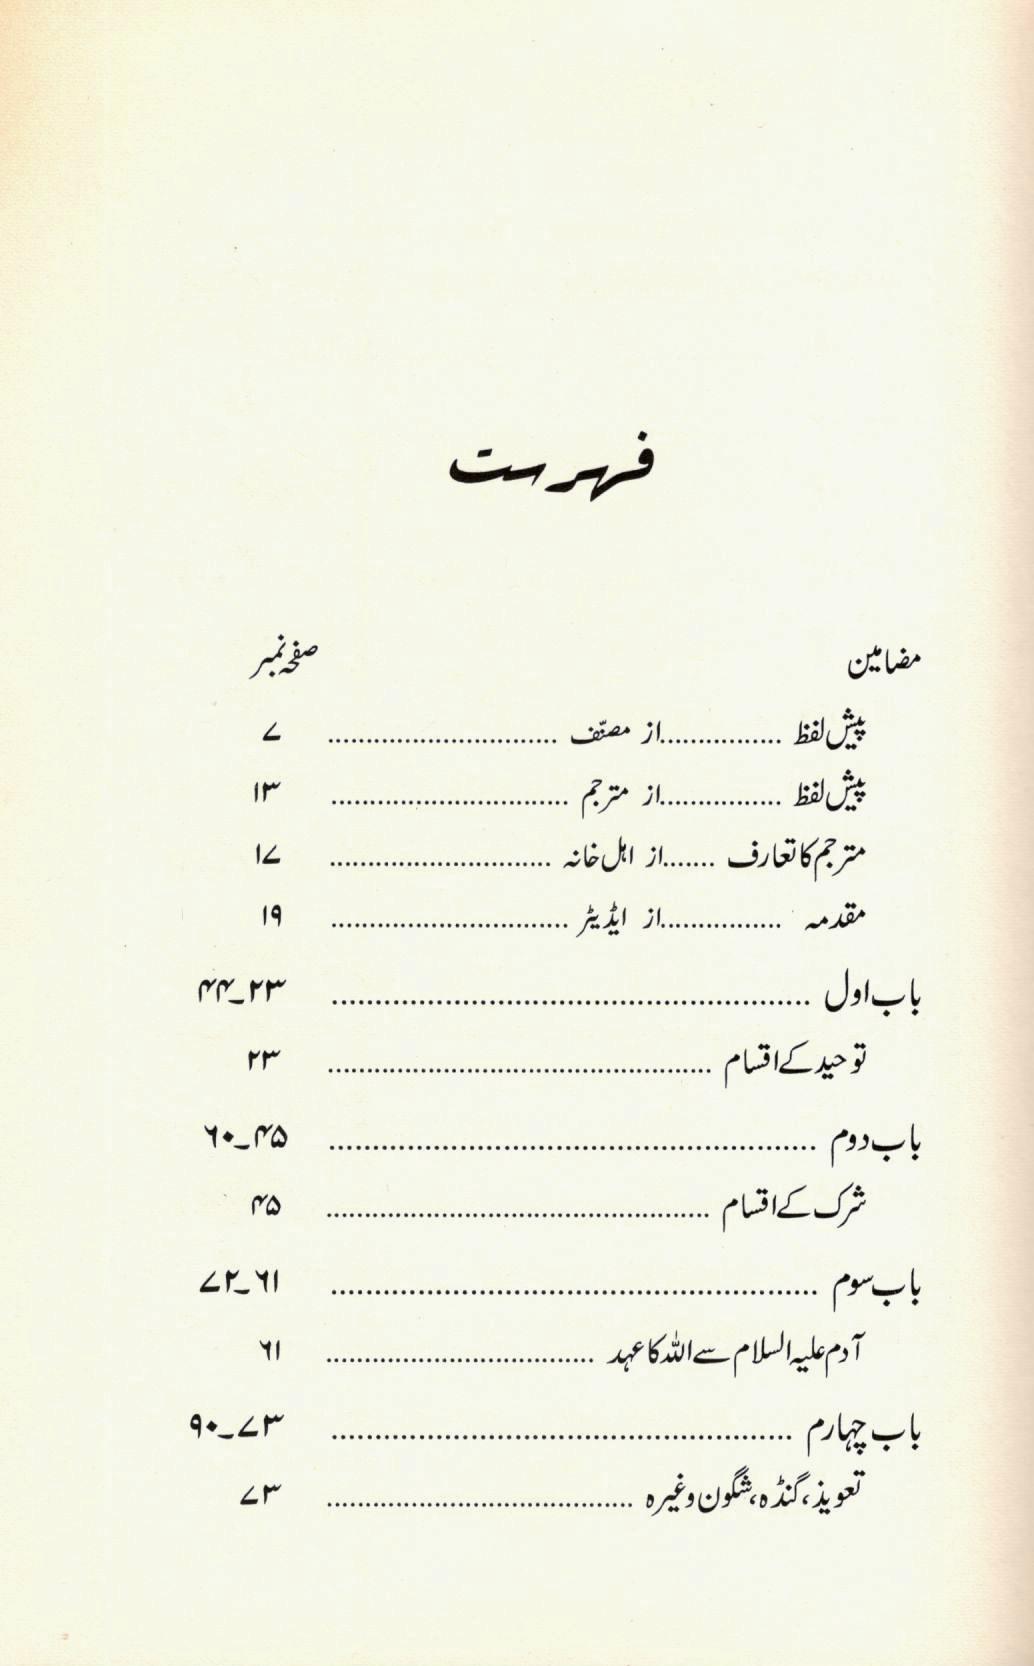 فہرست
مضامین صفحہ نمبر
پیش لفظ ................از مصنّف .............................. ۷
پیش لفظ ................از مترجم .............................. ۱۳
مترجم کا تعارف .......از اہل خانہ ............................. ۱۷
مقدمہ ................از ایڈیٹر ............................... ۱۹
باب اول ..................................................... ۲۳_۴۴
توحید کے اقسام .................................................. ۲۳
باب دوم ...................................................... ۴۵_۶۰
شرک کے اقسام .................................................. ۴۵
باب سوم ...................................................... ۶۱_۷۲
آدم علیہ السلام سے اللہ کا عہد ................................... ۶۱
باب چہارم .................................................... ۷۳_۹۰
تعویذ، گنڈہ، شگون وغیرہ ........................................ ۷۳